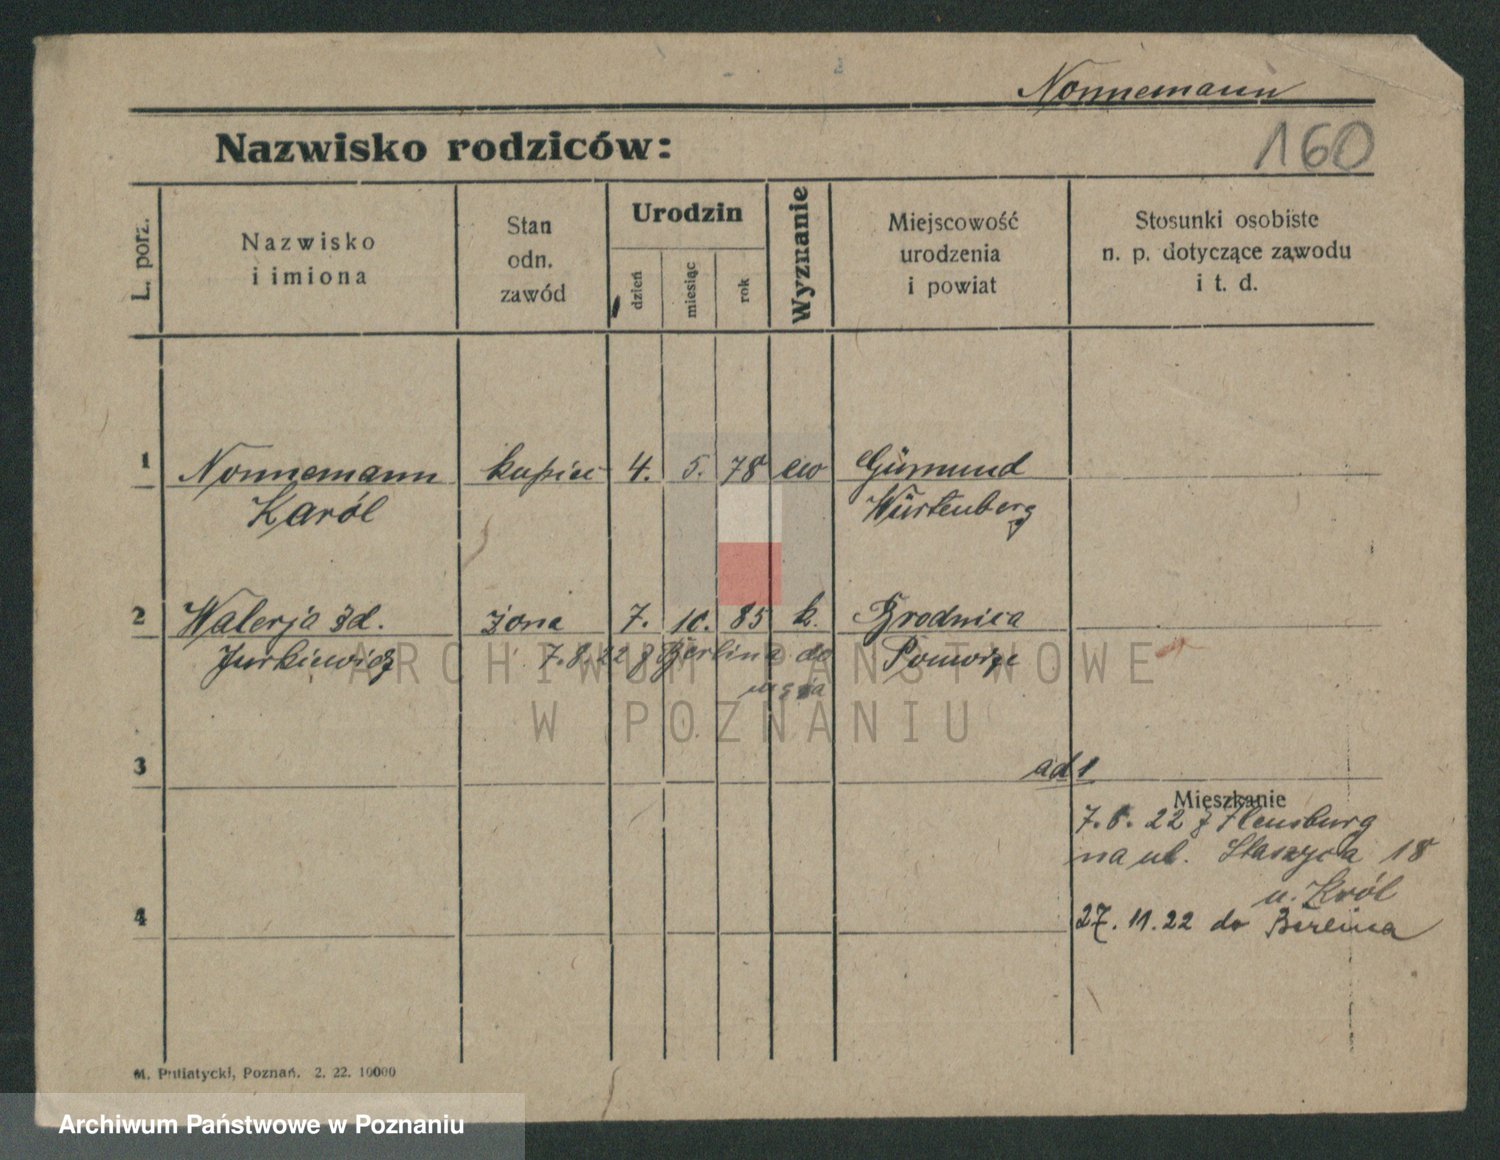 Nonnemann
160
Nazwisko rodziców:
L. porz.
Nazwisko
i imiona
Stan
odn.
zawód
Urodzin
dzień
miesiąc
rok
Wyznanie
Miejscowość
urodzenia
i powiat
Stosunki osobiste
n. p. dotyczące zawodu
i t. d.
1 Nonnemann kupiec 4. 5. 78 ew Gümund
Karól Würtenberg
2 Walerja zd. żona 7. 10. 85 k. Brodnica
Jurkiewicz 7.8.22 z Berlina do Pomorze
męża
ARCHIWUM PAŃSTWOWE
W POZNANIU
3
ad 1
Mieszkanie
7. 6. 22 z Flensburg
na ul. Staszyca 18
u. Król
4
27. 11. 22 do Berlina
M. Putiatycki, Poznań. 2. 22. 10000
Archiwum Państwowe w Poznaniu